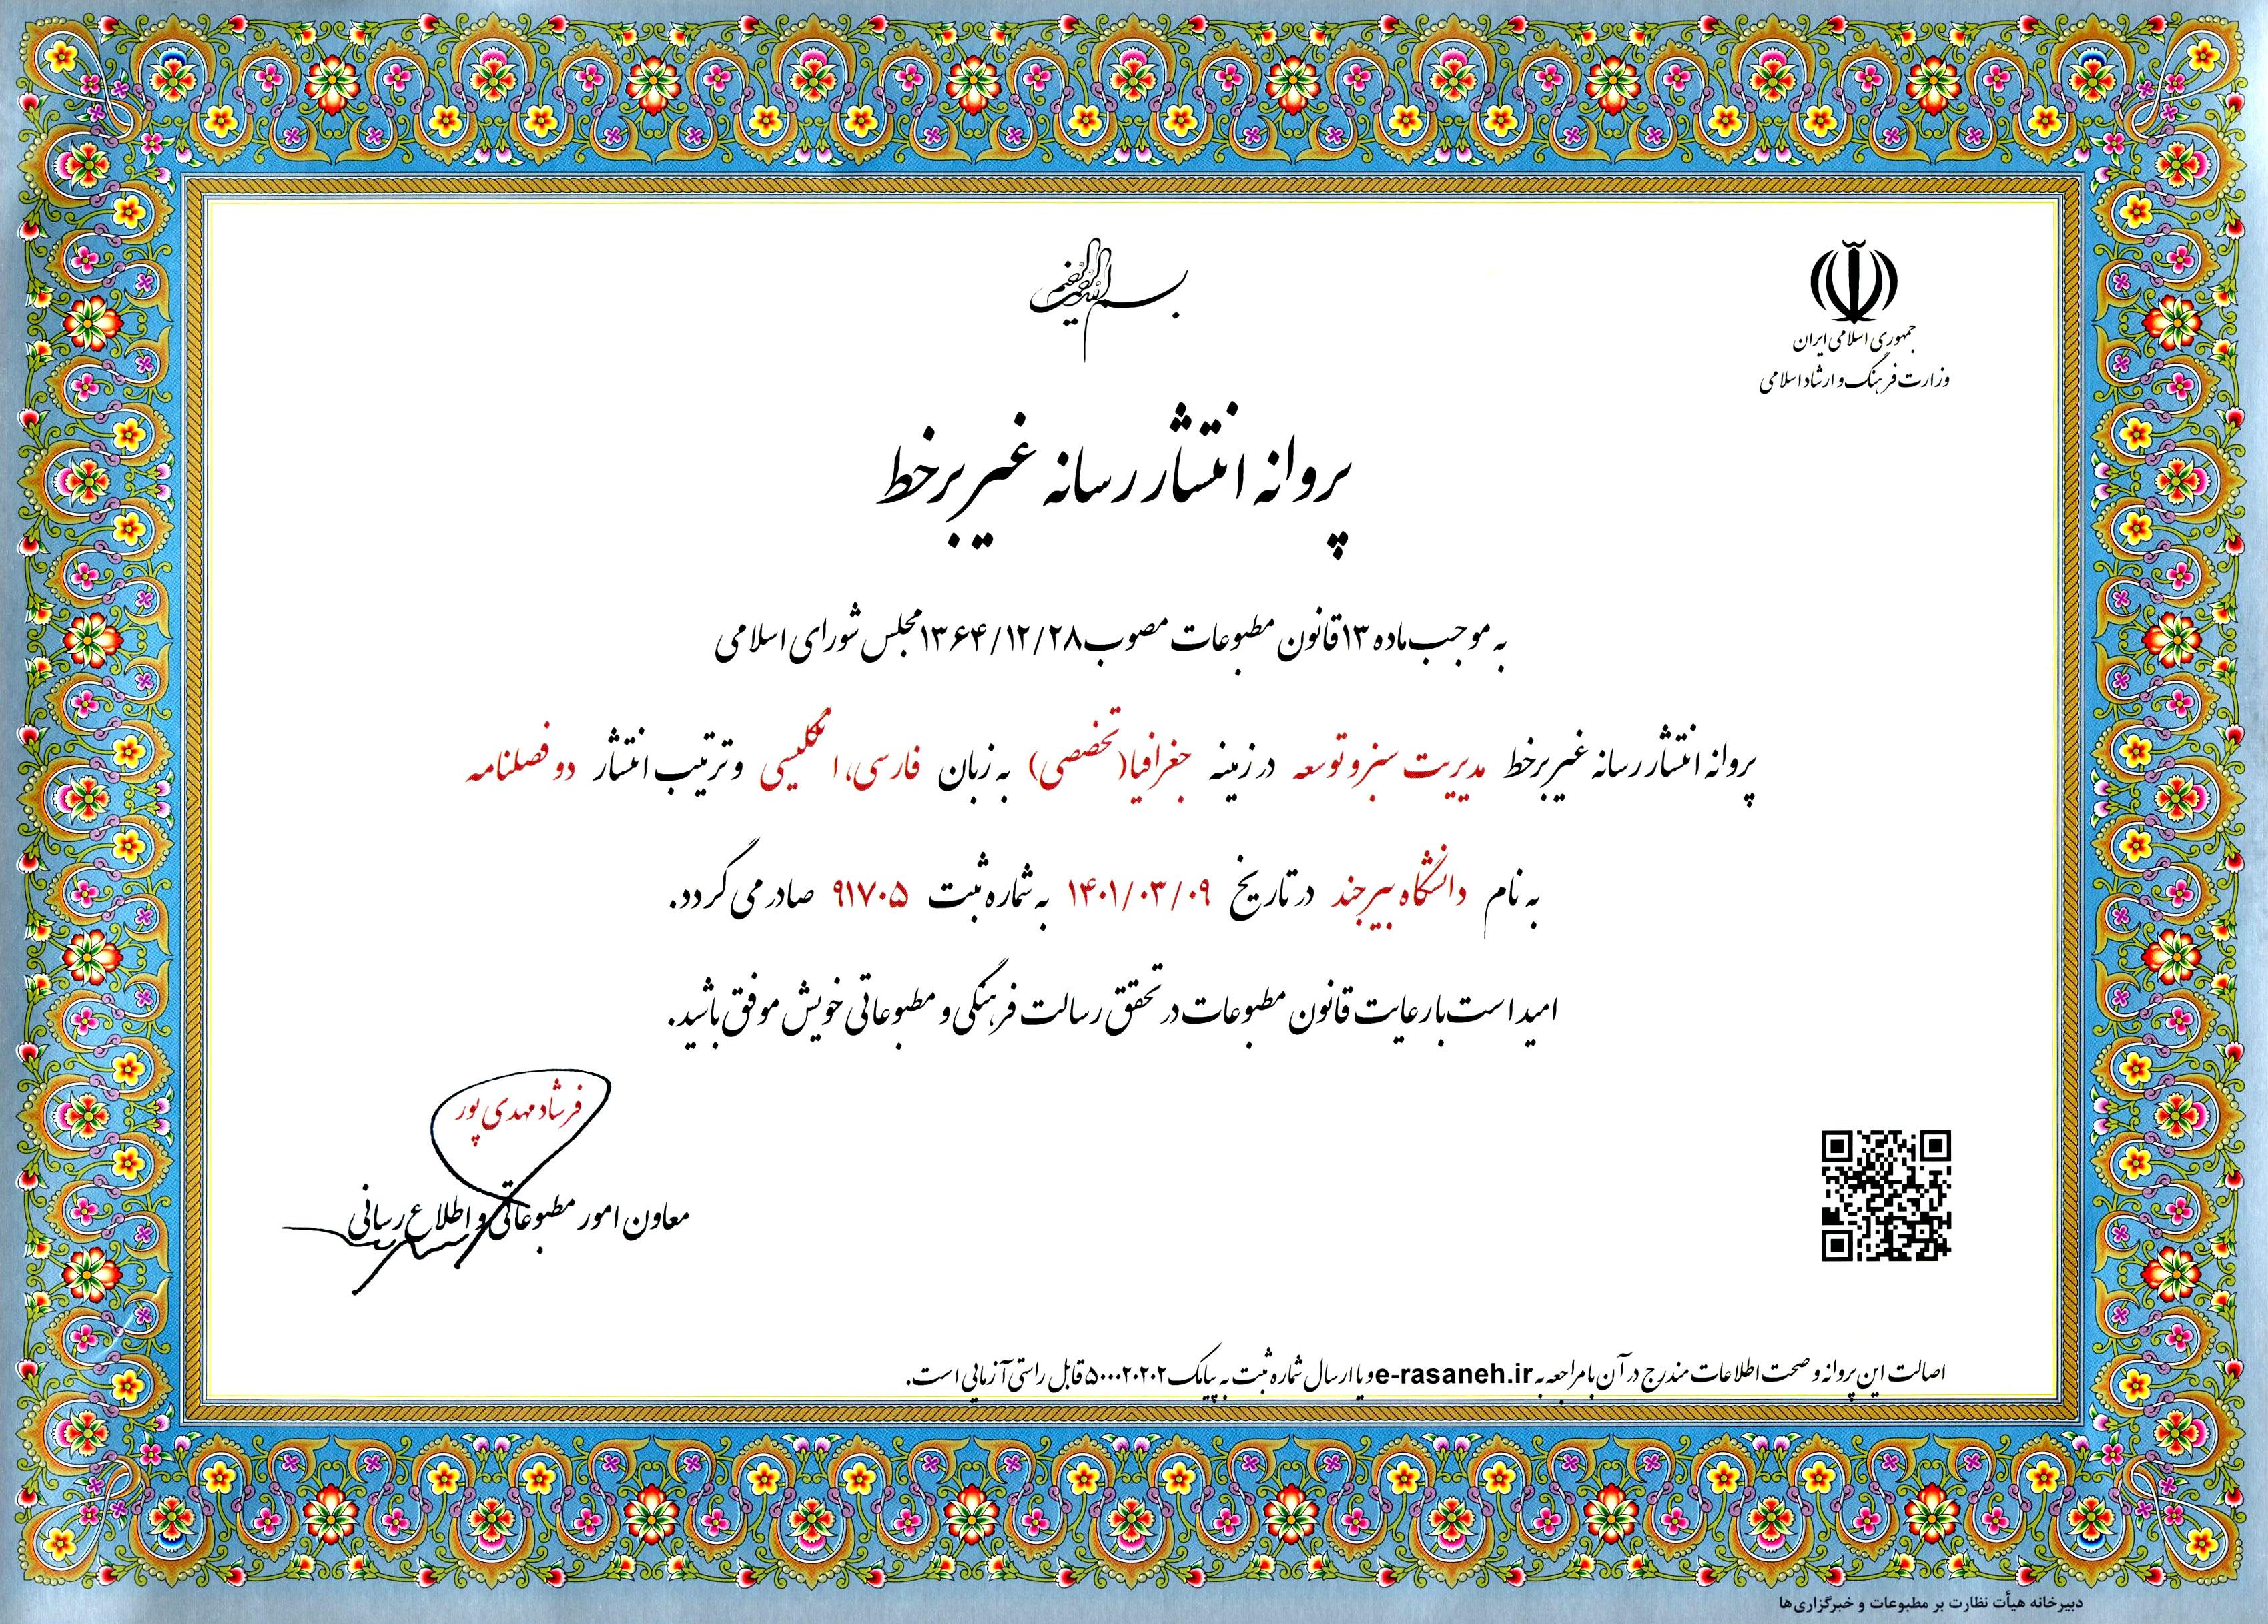 بسم الله الرحمن الرحیم
جمهوری اسلامی ایران
وزارت فرهنگ و ارشاد اسلامی
پروانه انتشار رسانه غیر برخط
به موجب ماده ۱۳ قانون مطبوعات مصوب ۱۳۶۴/۱۲/۲۸ مجلس شورای اسلامی
پروانه انتشار رسانه غیر برخط مدیریت سبز و توسعه در زمینه جغرافیا (تخصصی) به زبان فارسی، انگلیسی و ترتیب انتشار دو فصلنامه
به نام دانشگاه بیرجند در تاریخ ۱۴۰۱/۰۳/۰۹ به شماره ثبت ۹۱۷۰۵ صادر می گردد.
امید است با رعایت قانون مطبوعات در تحقق رسالت فرهنگی و مطبوعاتی خویش موفق باشید.
فرشاد مهدی پور
معاون امور مطبوعاتی و اطلاع رسانی
اصالت این پروانه و صحت اطلاعات مندرج در آن با مراجعه به e-rasaneh.ir و یا ارسال شماره ثبت به پیامک ۵۰۰۰۲۰۲۰۲ قابل راستی آزمایی است.
دبیرخانه هیأت نظارت بر مطبوعات و خبرگزاری‌ها